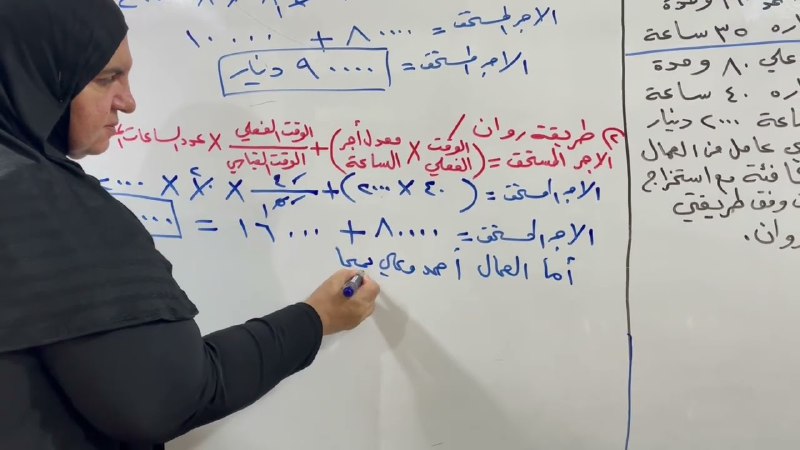 الاجر المستحق = ٨٠٠٠٠ + ١٠٠٠٠
الاجر المستحق = ٩٠٠٠٠ دينار
٢) طريقة روان /
الاجر المستحق = (الوقت الفعلي × معدل أجر الساعة) + الوقت الفعلي / الوقت القياسي × عدد الساعات
الاجر المستحق = (٤٠ × ٢٠٠٠) +
الاجر المستحق = ٨٠٠٠٠ + ١٦٠٠٠ =
أما العمال أحمد وعلي
ره ٣٥ ساعة
علي ٨٠ وحدة
اره ٤٠ ساعة
ساعة ٢٠٠٠ دينار
ي عامل من العمال
افئة مع استخراج
وفق طريقتي
روان.